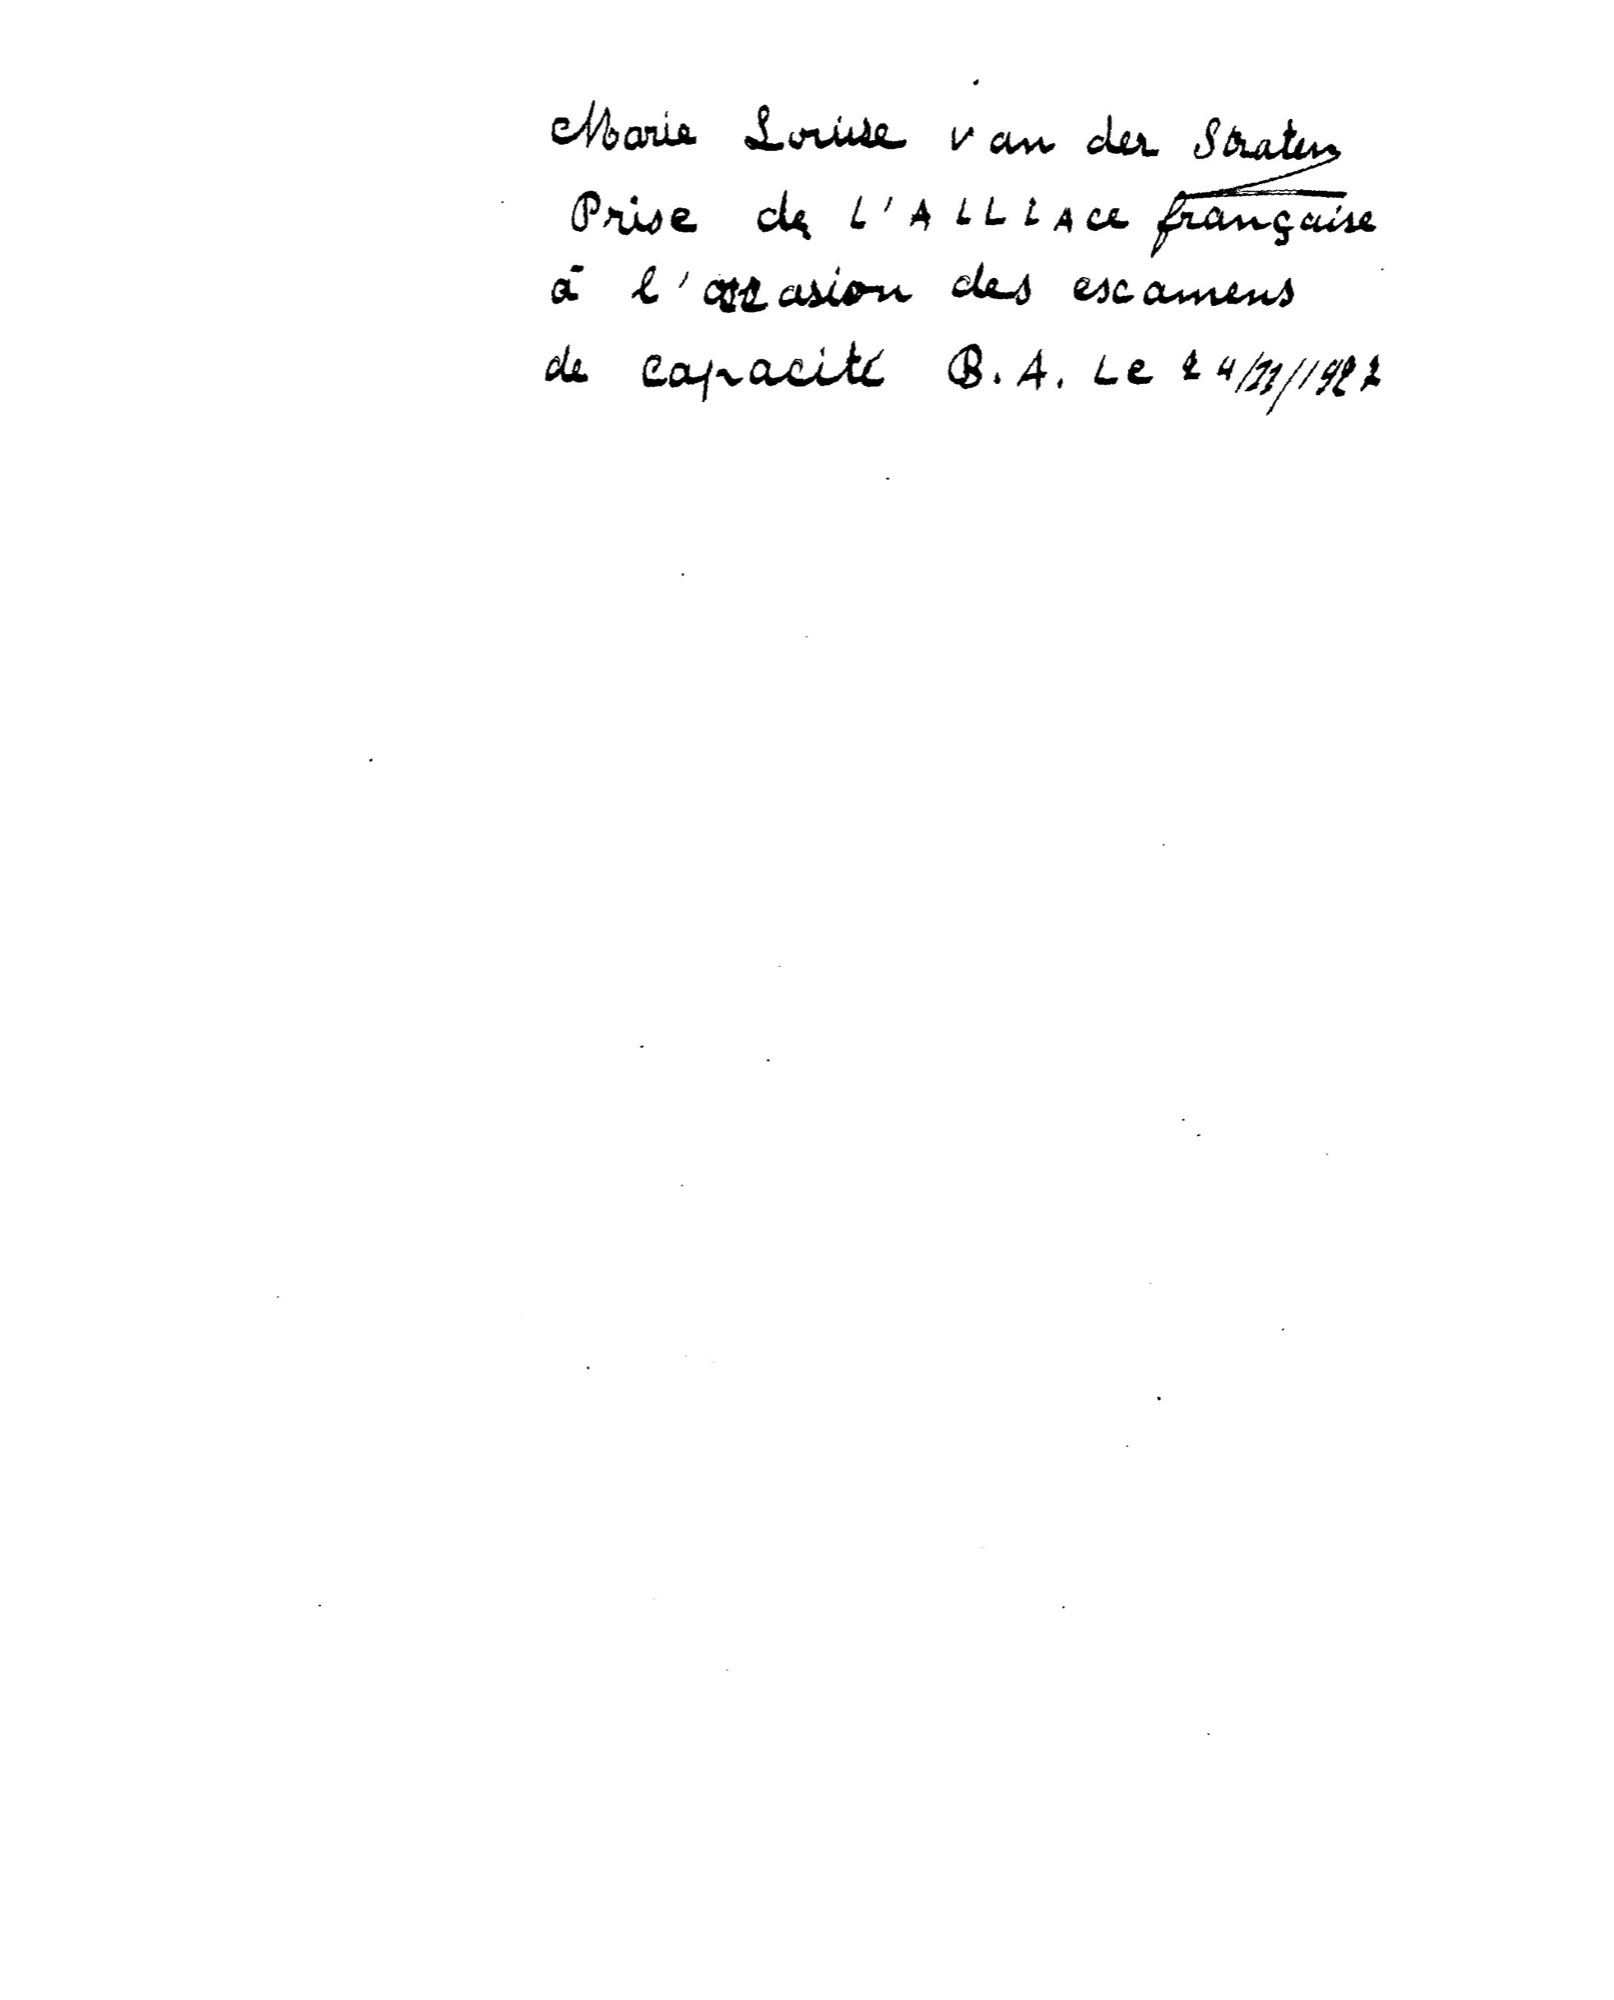 Marie Louise van der Straten
Prise de L'ALLIACE française
à l'occasion des escamens
de capacité B.A. Le